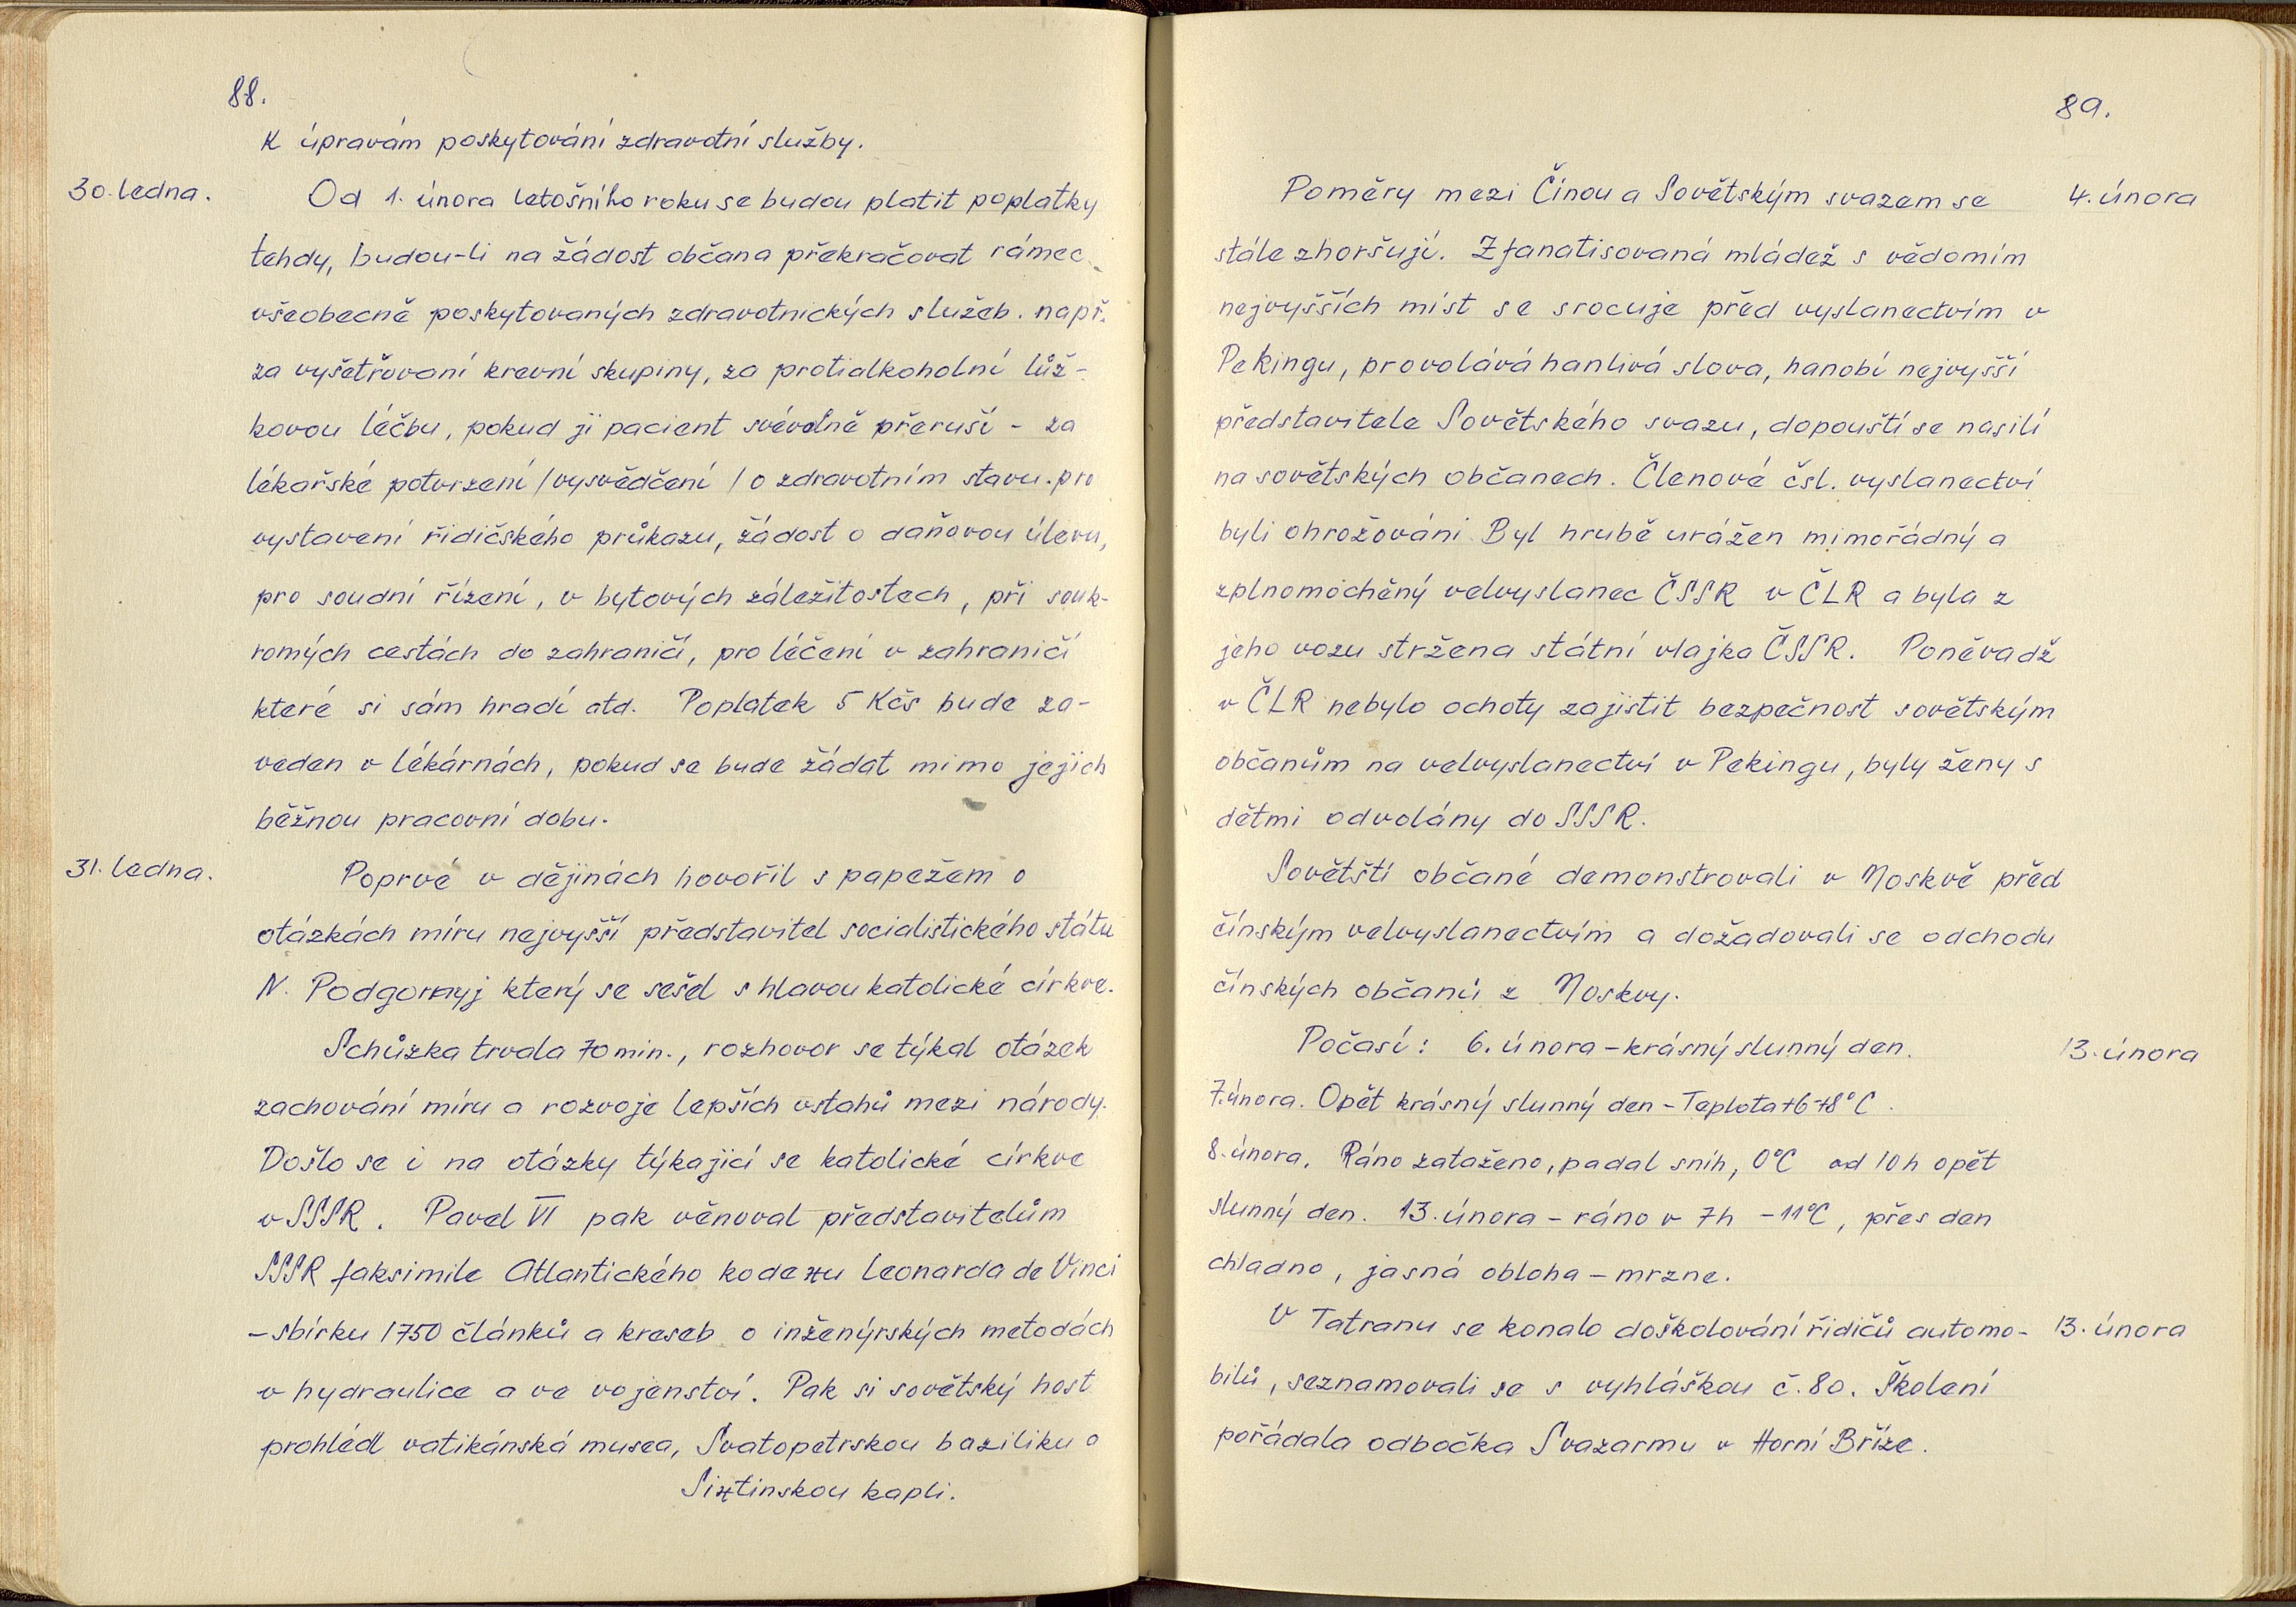 88.
K úpravám poskytování zdravotní služby.
30. ledna.
Od 1. února letošního roku se budou platit poplatky
tehdy, budou-li na žádost občana překračovat rámec
všeobecně poskytovaných zdravotnických služeb. např.
za vyšetřovaní krevní skupiny, za protialkoholní lůž-
kovou léčbu, pokud ji pacient svévolně přeruší - za
lékařské potvrzení /vysvědčení / o zdravotním stavu. pro
vystavení řidičského průkazu, žádost o daňovou úlevu,
pro soudní řízení, v bytových záležitostech, při souk-
romých cestách do zahraničí, pro léčení v zahraničí
které si sám hradí atd. Poplatek 5 Kčs bude za-
veden v lékárnách, pokud se bude žádat mimo jejich
běžnou pracovní dobu.
31. ledna.
Poprvé v dějinách hovořil s papežem o
otázkách míru nejvyšší představitel socialistického státu
N. Podgornyj který se sešel s hlavou katolické církve.
Schůzka trvala 70 min., rozhovor se týkal otázek
zachování míru a rozvoje lepších vstahů mezi národy.
Došlo se i na otázky týkající se katolické církve
v SSSR. Pavel VI pak věnoval představitelům
SSSR faksimile Atlantického kodexu Leonarda de Vinci
- sbírku 1750 článků a kreseb o inženýrských metodách
v hydraulice a ve vojenství. Pak si sovětský host
prohlédl vatikánská musea, Svatopetrskou baziliku a
Sixtinskou kapli.
89.
Poměry mezi Čínou a Sovětským svazem se
4. února
stále zhoršují. Zfanatisovaná mládež s vědomím
nejvyšších míst se srocuje před vyslanectvím v
Pekingu, provolává hanlivá slova, hanobí nejvyšší
představitele Sovětského svazu, dopouští se nasilí
na sovětských občanech. Členové čsl. vyslanectví
byli ohrožováni. Byl hrubě urážen mimořádný a
zplnomocněný velvyslanec ČSSR v ČLR a byla z
jeho vozu stržena státní vlajka ČSSR. Poněvadž
v ČLR nebylo ochoty zajistit bezpečnost sovětským
občanům na velvyslanectví v Pekingu, byly ženy s
dětmi odvolány do SSSR.
Sovětští občané demonstrovali v Moskvě před
čínským velvyslanectvím a dožadovali se odchodu
čínských občanů z Moskvy.
Počasí: 6. února - krásný slunný den.
13. února
7. února. Opět krásný slunný den - Teplota +6 +8°C.
8. února. Ráno zataženo, padal sníh, 0°C od 10 h opět
slunný den. 13. února - ráno v 7h - 11°C, přes den
chladno, jasná obloha - mrzne.
V Tatranu se konalo doškolování řidičů automo-
13. února
bilů, seznamovali se s vyhláškou č. 80. Školení
pořádala odbočka Svazarmu v Horní Bříze.